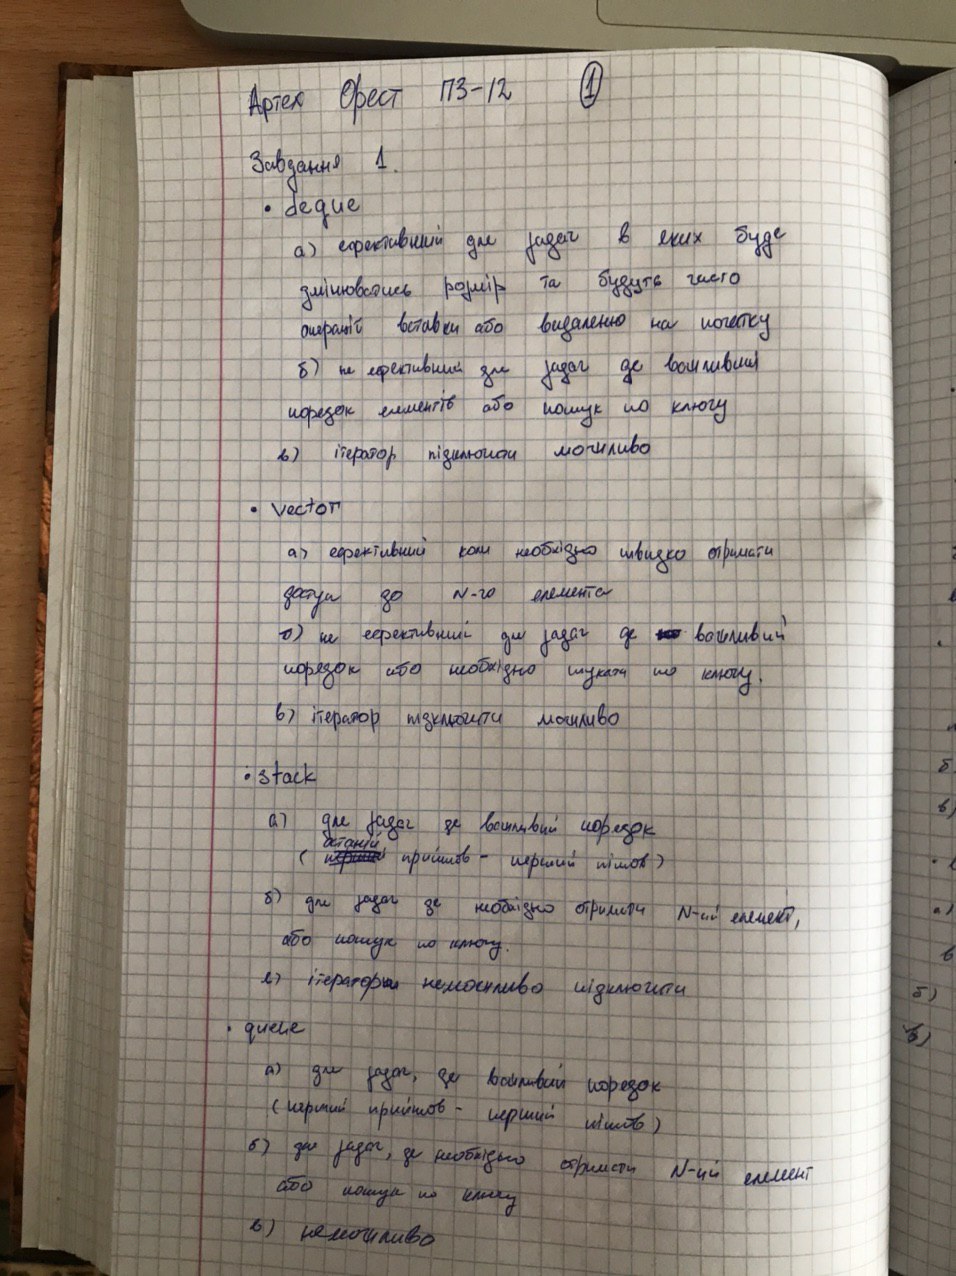 Артех Орест ПЗ-12 1
Завдання 1.
• deque
а) ефективний для задач в яких буде
змінюватись розмір та будуть часто
операцій вставки або видаленню на початку
б) не ефективний для задач де важливий
порядок елементів або пошук по ключу
в) ітератор підключити можливо
• vector
а) ефективний коли необхідно швидко отримати
доступ до N-го елемента
б) не ефективний для задач де важливий
порядок або необхідно шукати по ключу.
в) ітератор підключити можливо
• stack
а) для задач де важливий порядок
(останій прийшов - перший пішов)
б) для задач де необхідно отримати N-ий елемент,
або пошук по ключу.
в) ітератори неможливо підключити
• queue
а) для задач, де важливий порядок
(перший прийшов - перший пішов)
б) для задач, де необхідно отримати N-ий елемент
або пошук по ключу
в) неможливо
б)
в)
а)
в
б)
в)